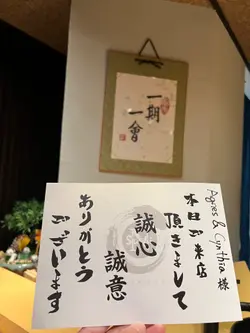 一期
一會
Agnes & Cynthia 様
本日ご来店
頂きまして
誠心
誠意
ありがとう
ございます